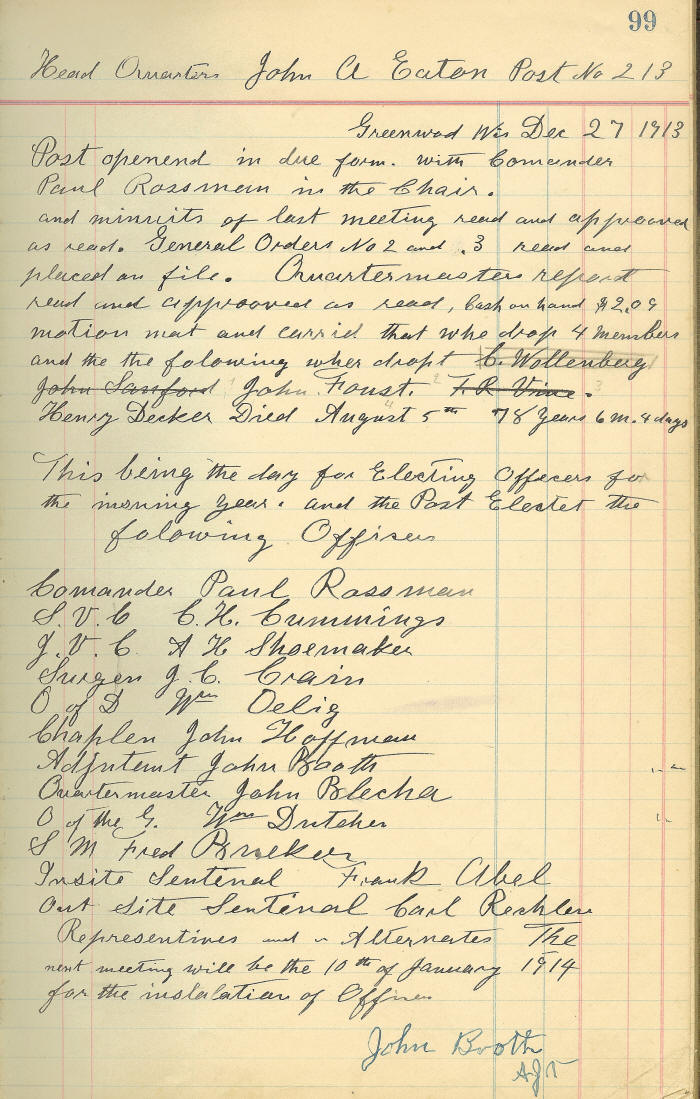 99
Head Quarters John A Eaton Post No 213
Greenwood Wis Dec 27 1913
Post openend in due form. with Comander
Paul Rossman in the Chair.
and minuits of last meeting read and approoved
as read. General Orders No 2 and .3 read and
placed on file. Quartermasters report
read and approoved as read, Cash on hand $2.09
motion mat and carrid that whe drop 4 members
and the the folowing wher dropt C. Wollenberg
John Sanford 1 John Foust. 2 F.R Vine. 3
Henry Decker Died August 5th 78 years 6 m. 4 days
4
This being the day for Electing Officers for
the insuing year. and the Post Electet the
folowing Officers
Comander Paul Rossman
S.V.C C.H. Cummings
J.V.C. A H Shoemaker
Surgen J.C. Crain
O of D Wm Oelig
Chaplen John Hoffman
Adjutemt John Booth
Quartermaster John Blecha
O of the G. Wm Dutcher
S M Fred
Insite Sentenal Frank Abel
Out Site Sentenal Carl Rechlen
Representives and Alternates The
next meeting will be the 10th of January 1914
for the instalation of Officers
John Booth
AJT